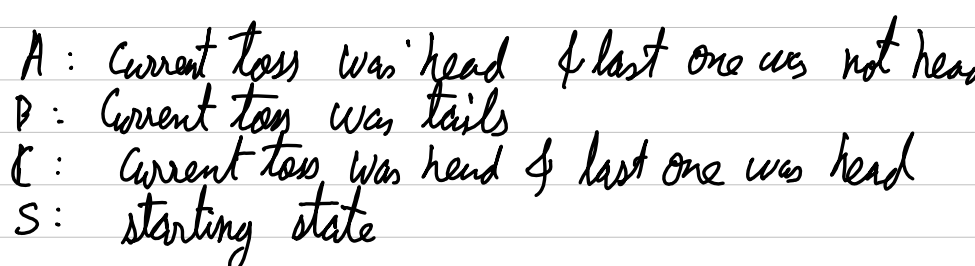 A : Current toss was head & last one was not head
B : Current toss was tails
C : Current toss was head & last one was head
S : starting state